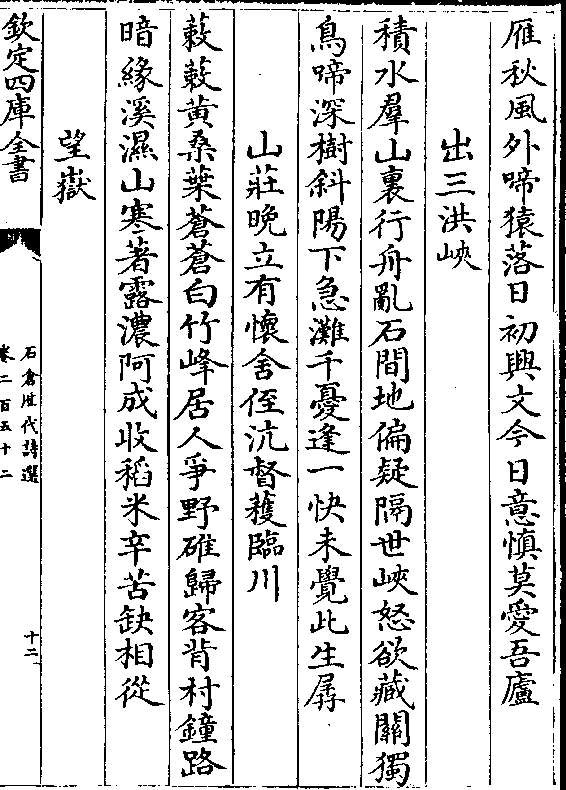 雁秋風外啼猿落日初興文今日意慎莫愛吾廬
出三洪峽
積水羣山裏行舟亂石間地偏疑隔世峽怒欲藏關獨
鳥啼深樹斜陽下急灘千憂逢一快未覺此生孱
山莊晩立有懷舍侄沆督穫臨川
蔌蔌黃桑葉蒼蒼白竹峰居人爭野碓歸客背村鐘路
暗緣溪濕山寒著露濃阿成收稻米辛苦缺相從
望嶽
欽定四庫全書
石倉歷代詩選
卷二百五十二
十二